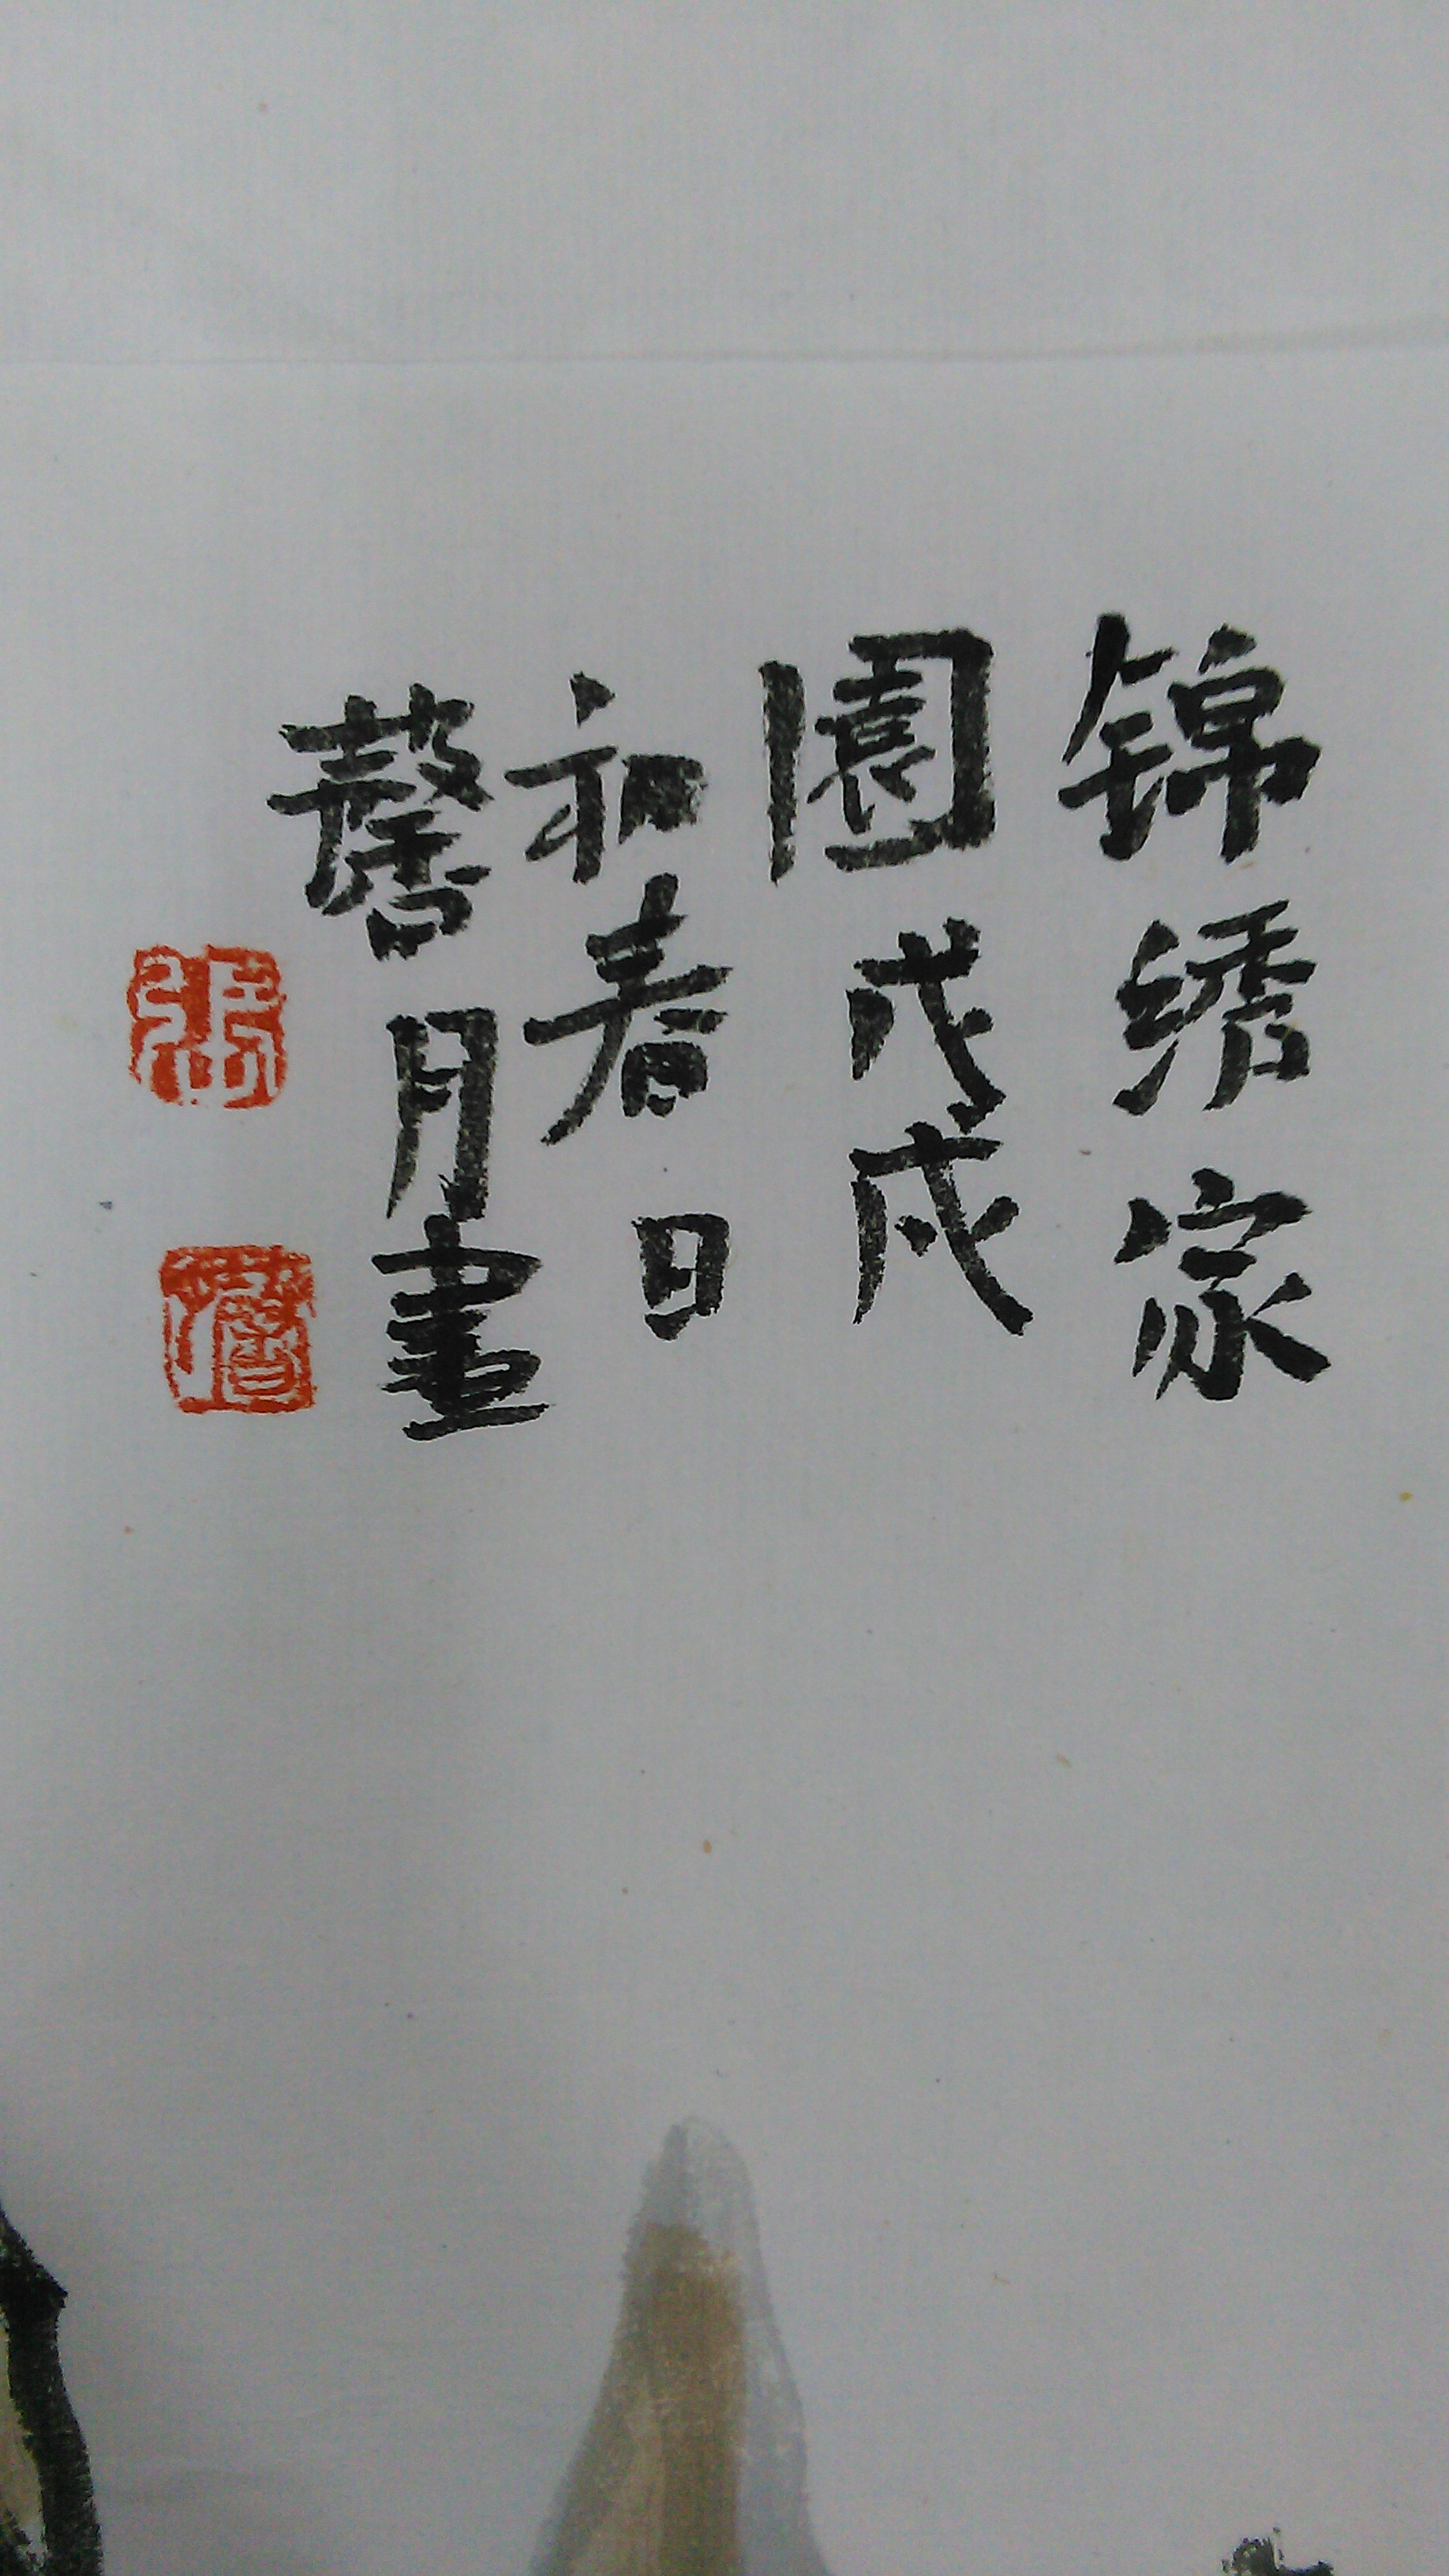 锦绣家
園戊戌
初春日
馨月畫
張